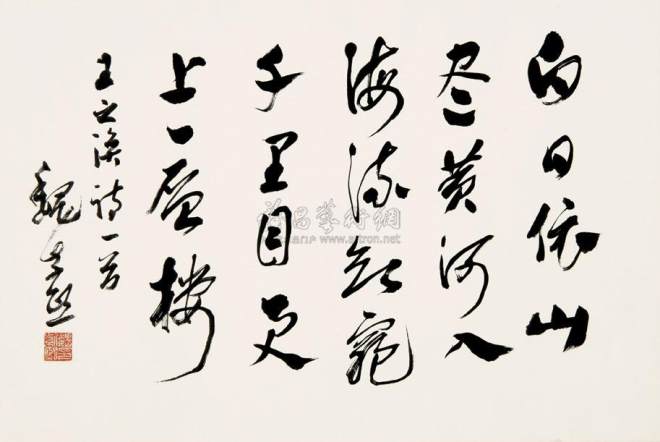 白日依山
尽黄河入
海流欲穷
千里目更
上一层楼
王之涣诗一首
魏
www.artron.net